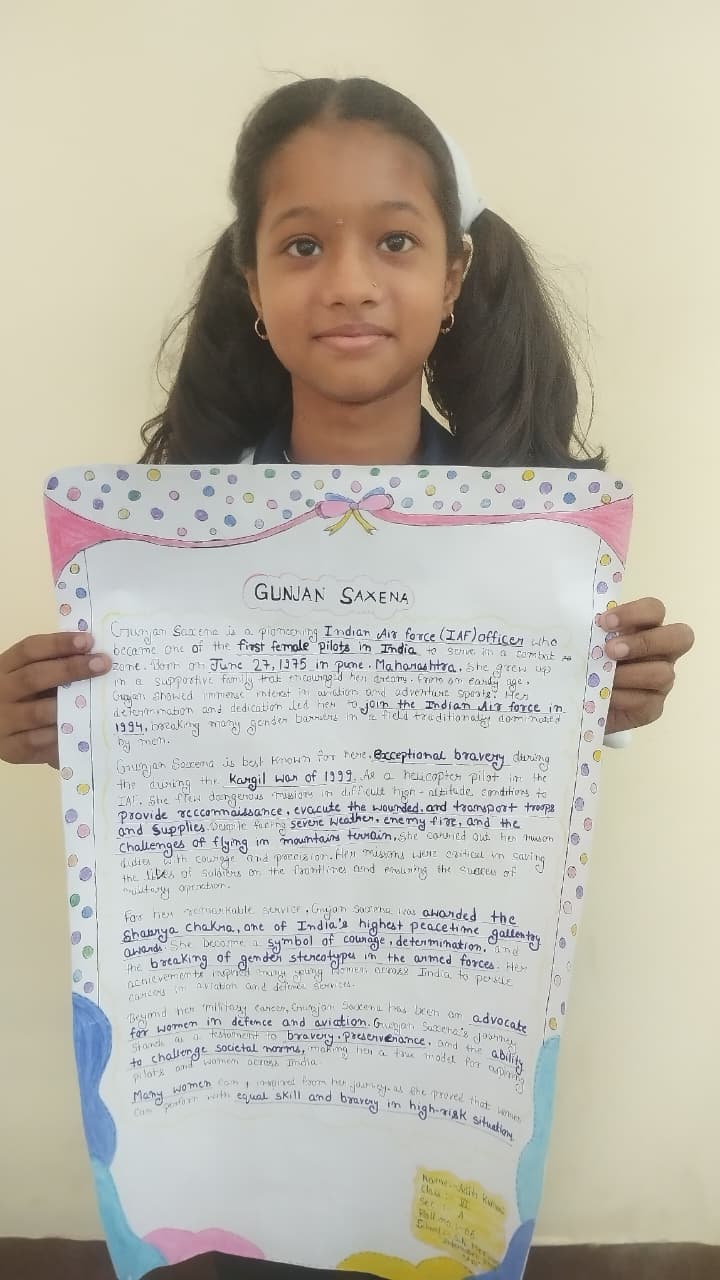 GUNJAN SAXENA
Gunjan Saxena is a pioneering Indian Air force (IAF) officer who
became one of the first female pilots in India to serve in a combat
zone. Born on June 27, 1975 in pune. Maharashtra. She grew up
in a supportive family that encouraged her dreams. From an early age.
Gunjan showed immense interest in aviation and adventure sports. Her
determination and dedication led her to join the Indian Air force in
1994, breaking many gender barriers in a field traditionally dominated
by men.
Gunjan Saxena is best known for here. exceptional bravery during
the during the Kargil war of 1999. As a helicopter pilot in the
IAF. She flew dangerous missions in difficult high-altitude conditions to
provide reccomnaissance, evacute the wounded, and transport troops
and Supplies. Despite facing severe weather, enemy fire, and the
challenges of flying in mountains terrain, She carried out her mission
duties with courage and precision. Her missions were critical in saving
the lifes of soldiers on the frontlines and ensuring the success of
military operation.
For her remarkable service, Gunjan Saxena was awarded the
Shaurya Chakra, one of India's highest peacetime gallentry
awards. She become a symbol of courage, determination, and
the breaking of gender stereotypes in the armed forces. Her
achievements inspired many young women across India to persue
careers in aviation and defence services.
Beyond her military career, Gunjan Saxena has been an advocate
for women in defence and aviation. Gunjan Saxena's journey
stands as a testament to bravery, preservenance, and the ability
to challenge societal norms, making her a true model for aspiring
pilots and women across India.
Many women inspired from her journey, as she proved that women
can perform with equal skill and bravery in high-risk situation.
Name:-
Class :- VI
Sec :- A
Roll no :-
School :-